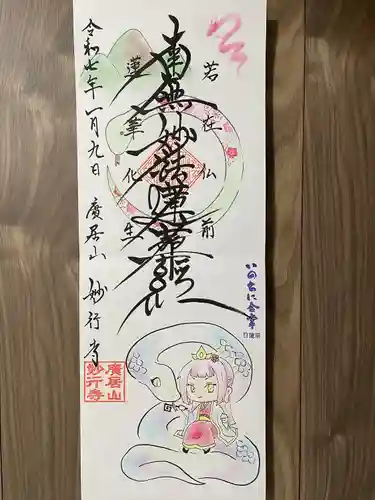 若在仏前
南無妙法蓮華経
蓮華化生
令和七年一月九日 廣居山 妙行寺
いのちに合掌
日蓮宗
廣居山
妙行寺